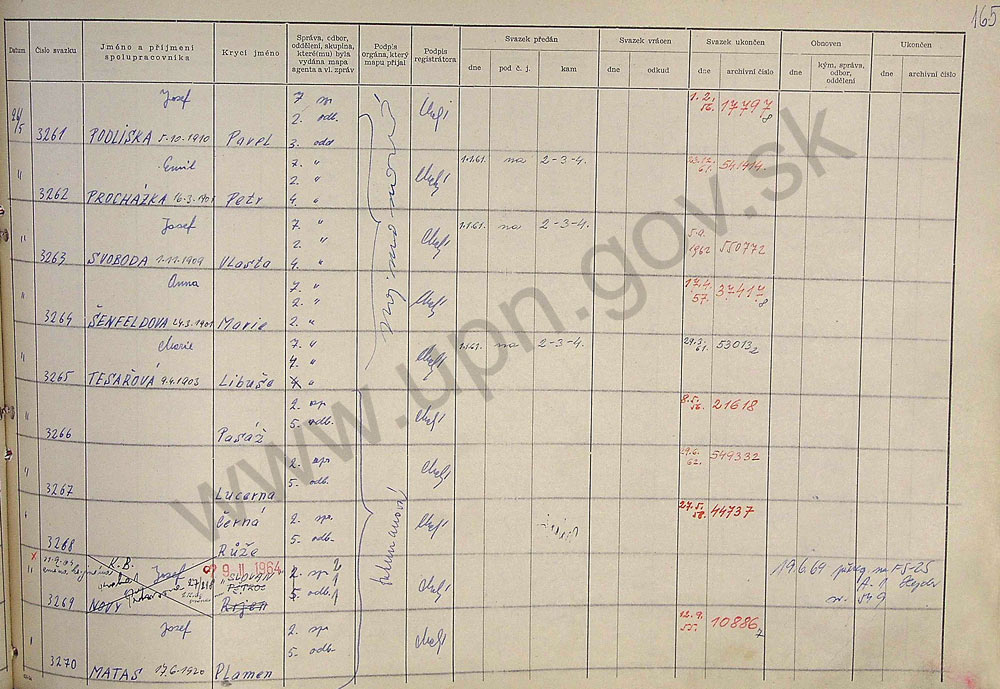 165
Datum
Číslo svazku
Jméno a příjmení
spolupracovníka
Krycí jméno
Správa, odbor,
oddělení, skupina,
které(mu) byla
vydána mapa
agenta a vl. zpráv
Podpis
orgána, který
mapu přijal
Podpis
registrátora
Svazek předán
dne
pod č. j.
kam
Svazek vrácen
dne
odkud
Svazek ukončen
dne
archivní číslo
Obnoven
dne
kým, správa,
odbor,
oddělení
Ukončen
dne
archivní číslo
24/5 3261 Josef
PODLISKA 5.10.1910 Pavel
7. sp.
2. odb.
3. odd
1.2.
56. 17797/8
" 3262 Emil
PROCHÁZKA 16.3.1901 Petr
7. "
2. "
4. "
1.1.61. na 2-3-4.
61. 541414
" 3263 Josef
SVOBODA 1.11.1909 Vlasta
7. "
2. "
4. "
1.1.61. na 2-3-4.
1962 550772
" 3264 Anna
ŠENFELDOVÁ 24.3.1901 Marie
7. "
2. "
2. "
17.4.
57. 37417/8
" 3265 Marie
TESAŘOVÁ 9.4.1903 Libuše
7. "
4. "
"
1.1.61. na 2-3-4.
61. 53013/2
" 3266 Pasáž
2. sp
5. odb.
8.5.
56. 21618
" 3267 Lucerna
2. sp.
5. odb.
62. 549332
3268 Černá
Růže
2. sp.
5. odb.
27.5.
58. 44737
x
" 3269 K.B.
Josef
NOVÝ
9. II. 1964
SLOVAN
PETROL
2. sp
5. odb.
19.6.64 na FS-25
549
3270 Josef
MATAS 17.6.1920 Plamen
2. sp
5. odb.
12.9.
55. 10886/7
www.upn.gov.sk